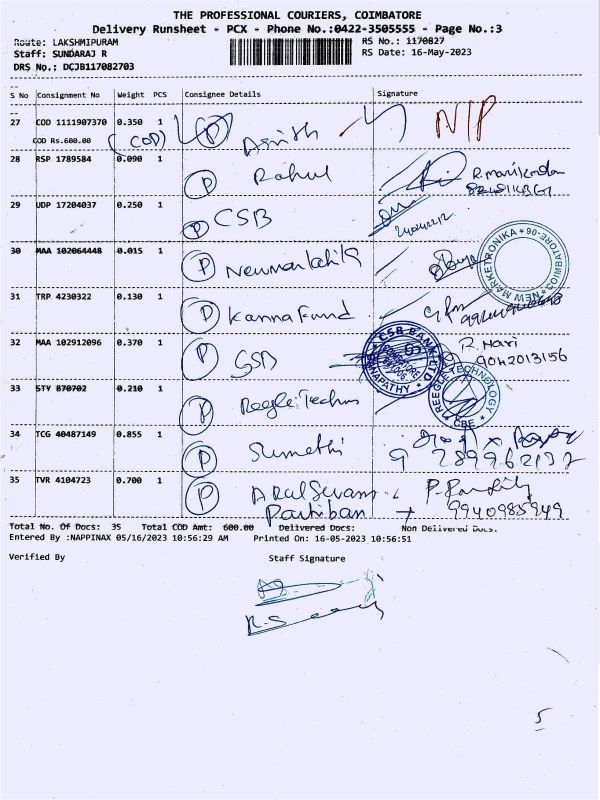 THE PROFESSIONAL COURIERS, COIMBATORE
Delivery Runsheet - PCX - Phone No.:0422-3505555 - Page No.:3
Route: LAKSHMIPURAM RS No.: 1170827
Staff: SUNDARAJ R RS Date: 16-May-2023
DRS No.: DCJB117082703
S No Consignment No Weight PCS Consignee Details Signature
27 COD 1111907370 0.350 1
COD Rs.600.00 (COD) P N/P
28 RSP 1789584 0.090 1 P Rahul
29 UDP 17204037 0.250 1 P CSB
30 MAA 102064448 0.015 1 P
NEW MARKETRONIKA * COIMBATORE-06 *
31 TRP 4230322 0.130 1 P Kanna Fund
32 MAA 102912096 0.370 1 P R. Hari
9042013156
CSB BANK LTD GANAPATHY
33 STY 870702 0.210 1 P
REEGLE TECHNOLOGY * CBE *
34 TCG 40487149 0.855 1 P Sumathi
35 TVR 4104723 0.700 1 P
Partiban 9940985949
Total No. Of Docs: 35 Total COD Amt: 600.00 Delivered Docs: Non Delivered Docs:
Entered By :NAPPINAX 05/16/2023 10:56:29 AM Printed On: 16-05-2023 10:56:51
Verified By Staff Signature
5